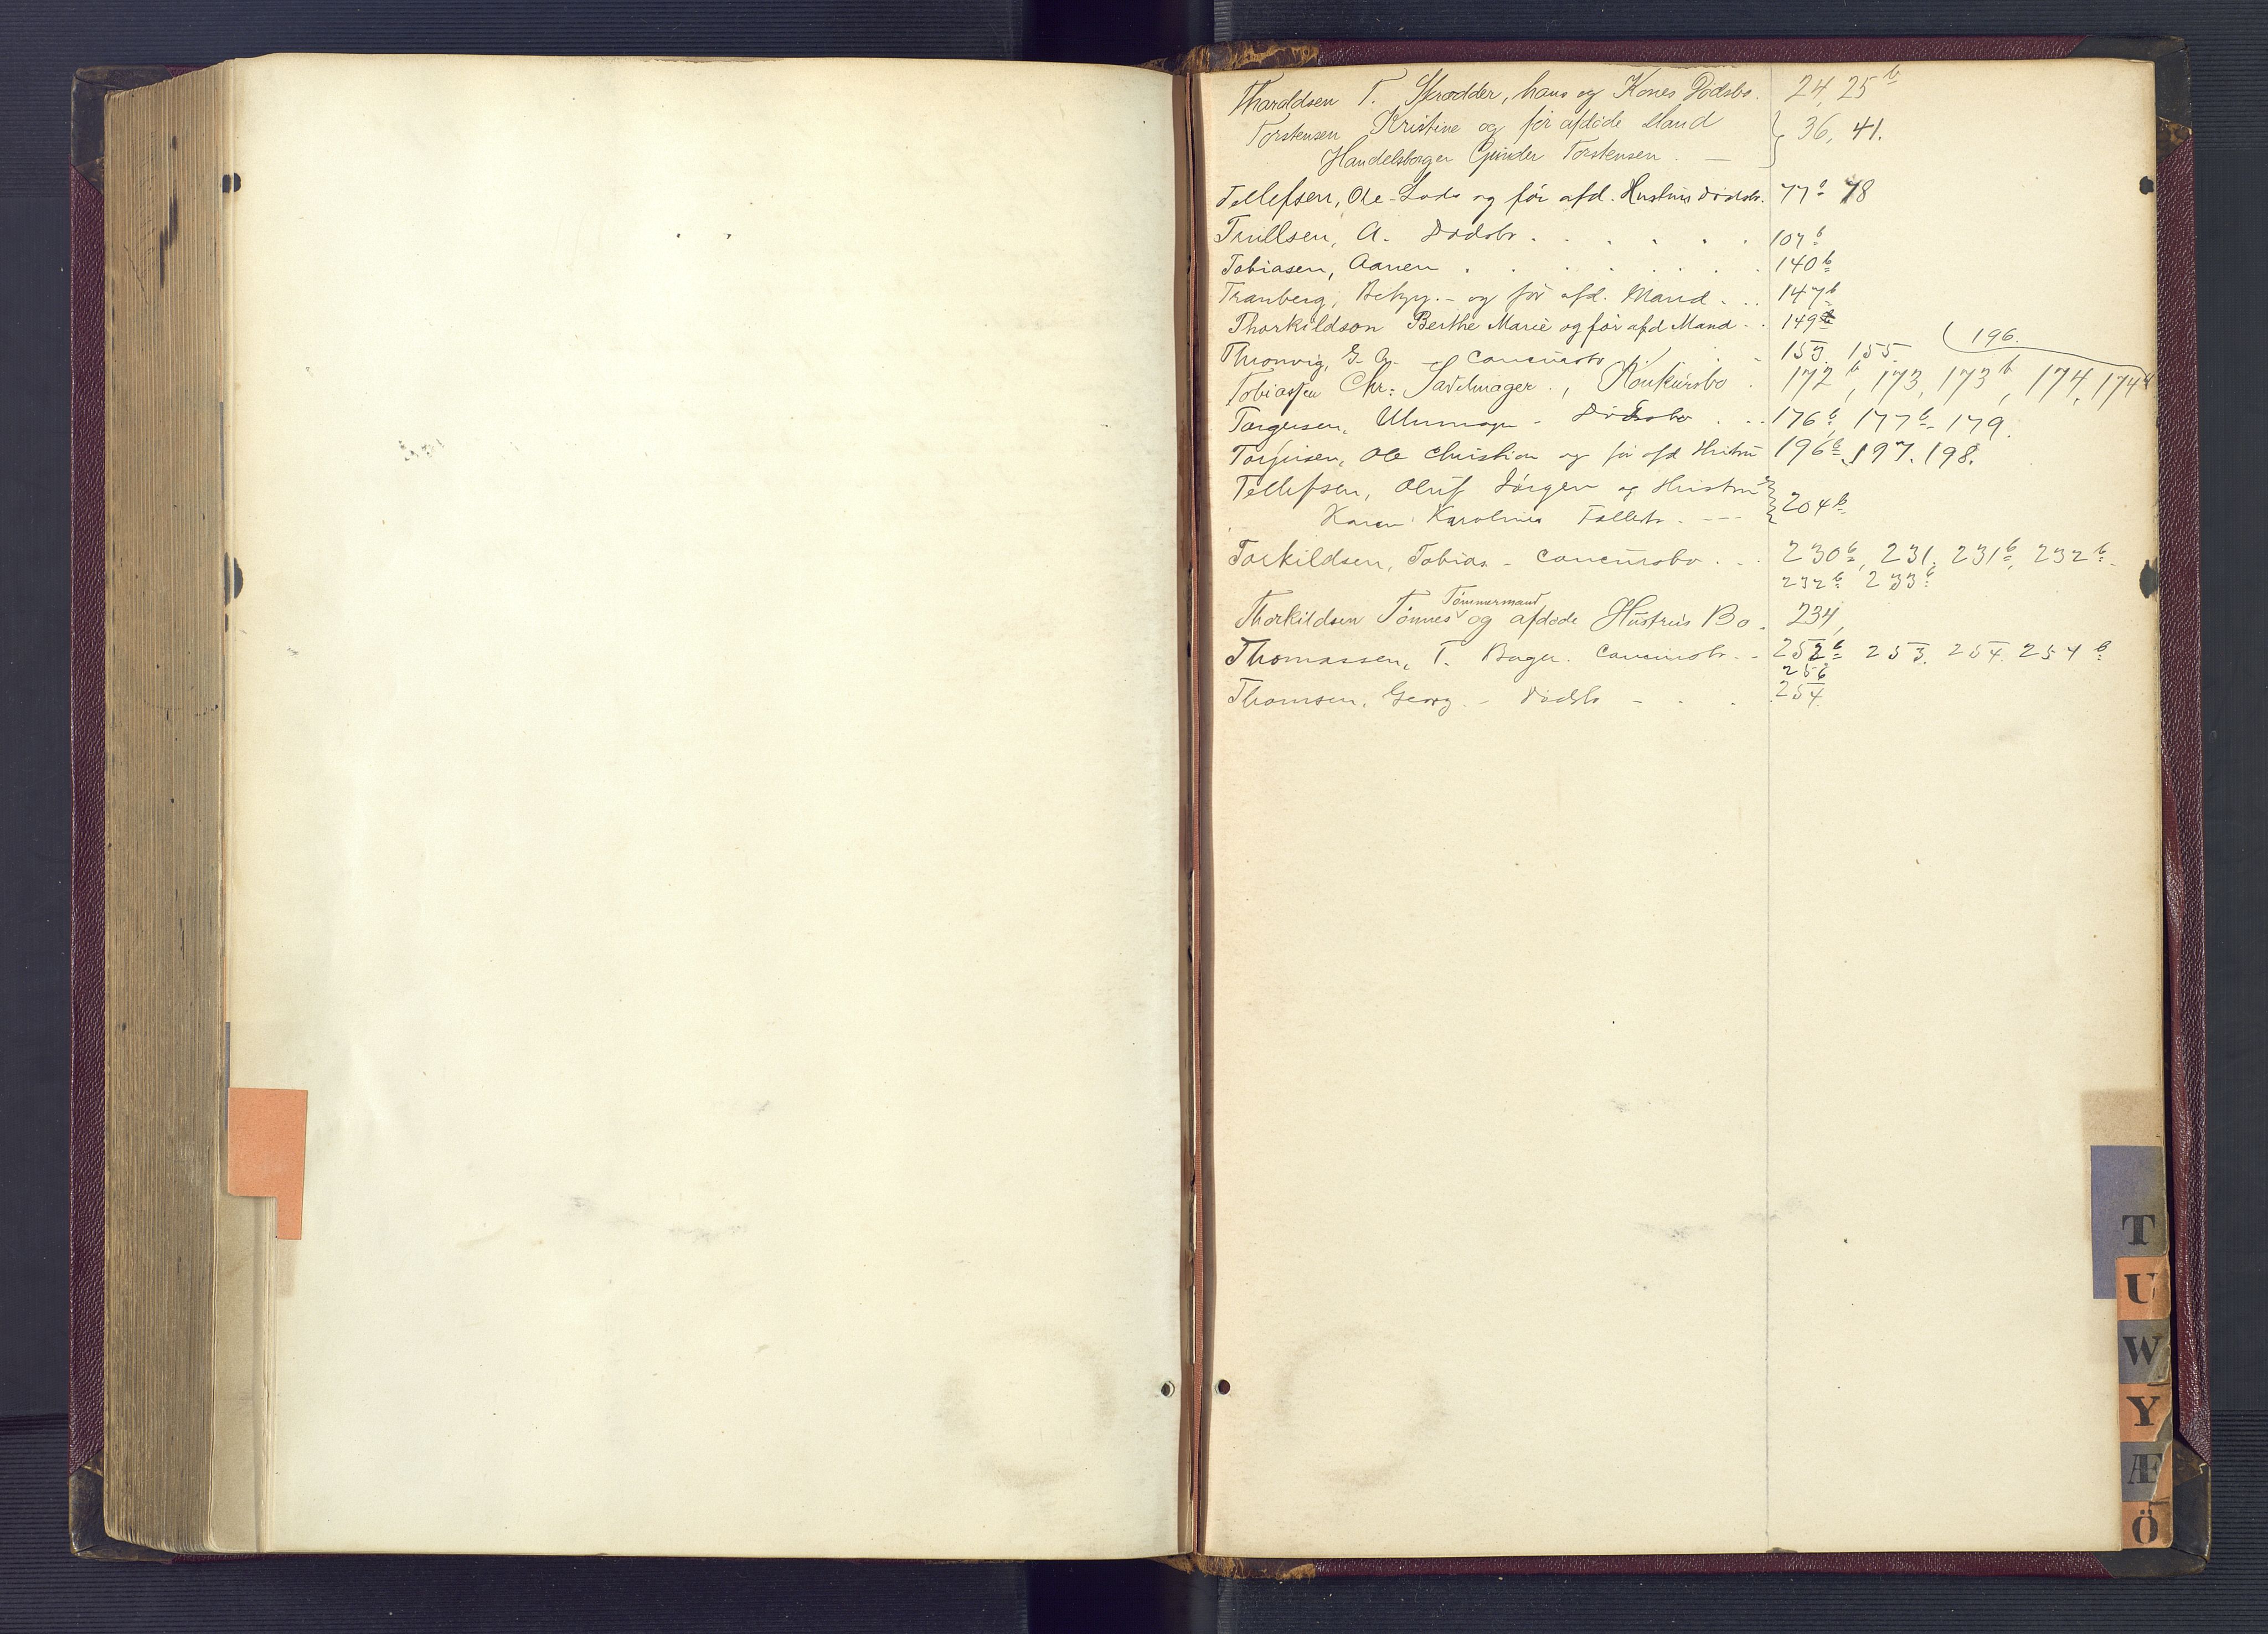 Tharaldsen T. Skrædder, hans og Kones Dødsbo. 24, 25 b
Torstensen Kristine og før afdøde Mand
Handelsborger Gunder Torstensen. — } 36, 41.
Tellefsen, Ole - Lods og før afd. Hustrus Dødsbo. 77 b 78
Trullsen, A. Dødsbo . . . . . 107 b
Tobiasen, Aanen . . . . . . 140 b
Tranberg, Betzy. - og før afd. Mand . . . 147 b
Thorkildson Berthe Marie og før afd Mand . . 149 b
196.
Thronvig, G. A. - Concursbo . . 153. 155.
Tobiassen Chr: Sadelmager., Konkursbo . 172 b, 173, 173 b, 174, 174 b
Torgersen, - Dødsbo . . . 176 b, 177 b - 179.
Torjusen, Ole Christian og før afd Hustru 196 b, 197. 198.
Tellefsen, Oluf Jørgen og Hustru
Karen Karoline Fallesbo. - - - } 204 b
Torkildsen, Tobias - Concursbo . . . 230 b, 231. 231 b, 232 b
232 b 233 b
Tømmermand
Thorkildsen Tønnes og afdøde Hustrus Bo. 234,
Thomassen, T. Bager. Concursbo. - - 252 b 253. 254. 254 b
256
Thomsen, Georg. - Dødsbo - . . 254.
T
U
W
Y
Æ
Ö